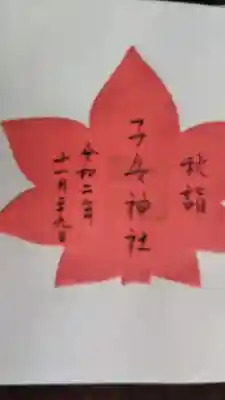 秋詣
子安神社
令和二年
十一月二十九日